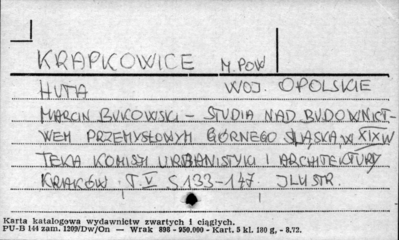 KRAPKOWICE M. POW
HUTA WOJ. OPOLSKIE
MARCIN BUKOWSKI - STUDIA NAD BUDOWNICT-
WEM PRZEMYSŁOWYM GÓRNEGO ŚLĄSKA W XIX W
TEKA KOMISJI URBANISTYKI I ARCHITEKTURY
KRAKÓW T. V S. 133-147 ILUSTR.
Karta katalogowa wydawnictw zwartych i ciągłych.
PU-B 144 zam. 1209/Dw/On — Wrak 898 - 950.000 - Kart. 5 kl. 180 g, - 8.72.